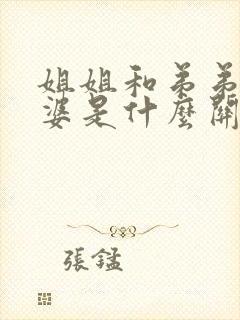 姐姐和弟弟
婆是什麼關
張錳